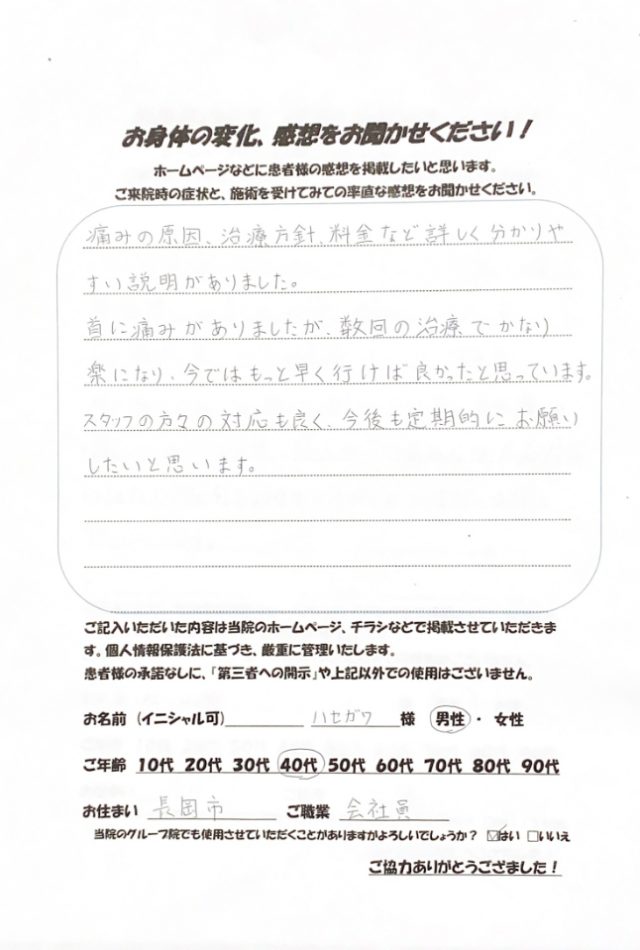 お身体の変化、感想をお聞かせください！
ホームページなどに患者様の感想を掲載したいと思います。
ご来院時の症状と、施術を受けてみての率直な感想をお聞かせください。
痛みの原因、治療方針、料金など詳しく分かりや
すい説明がありました。
首に痛みがありましたが、数回の治療でかなり
楽になり、今ではもっと早く行けば良かったと思っています。
スタッフの方々の対応も良く、今後も定期的にお願い
したいと思います。
ご記入いただいた内容は当院のホームページ、チラシなどで掲載させていただきま
す。個人情報保護法に基づき、厳重に管理いたします。
患者様の承諾なしに、「第三者への開示」や上記以外での使用はございません。
お名前（イニシャル可） ハセガワ 様 男性・女性
ご年齢 10代 20代 30代 40代 50代 60代 70代 80代 90代
お住まい 長岡市 ご職業 会社員
当院のグループ院でも使用させていただくことがありますがよろしいでしょうか？ ☑はい □いいえ
ご協力ありがとうござました！